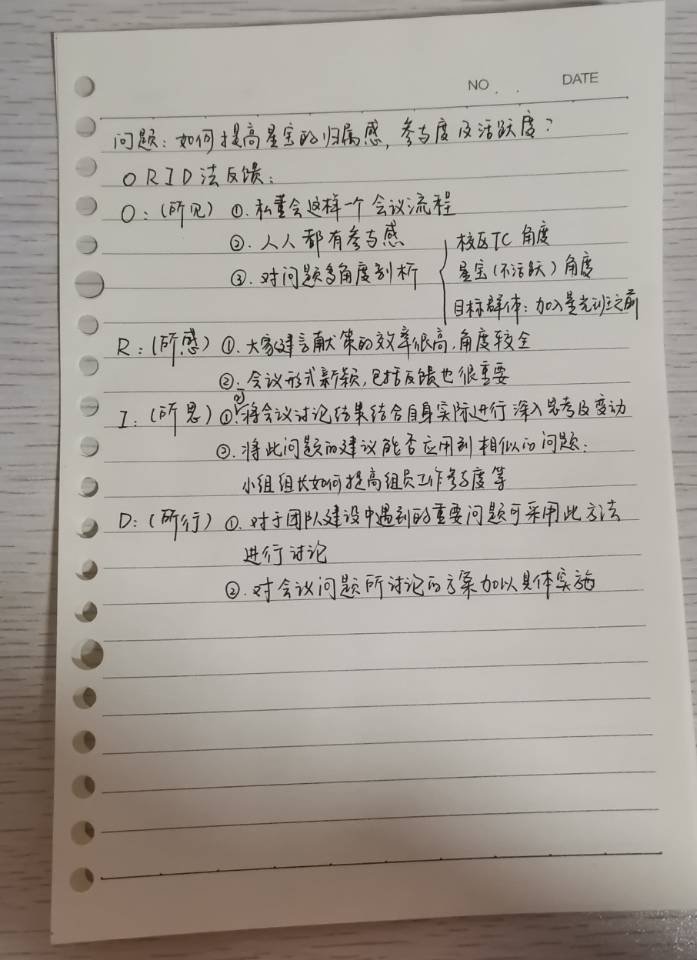 NO. . DATE
问题：如何提高星宝的归属感，参与度及活跃度？
ORID法反馈：
O：(所见) ①.私董会这样一个会议流程
②.人人都有参与感
③.对问题多角度剖析
校区TC角度
星宝(不活跃)角度
目标群体：加入星光班之前
R：(所感) ①.大家建言献策的效率很高，角度较全
②.会议形式新颖，包括反馈也很重要
I：(所思) ①.将会议讨论结果结合自身实际进行深入思考及变动
②.将此问题的建议能否应用到相似的问题：
小组组长如何提高组员工作参与度等
D：(所行) ①.对于团队建设中遇到的重要问题可采用此方法
进行讨论
②.对会议问题所讨论的方案加以具体实施